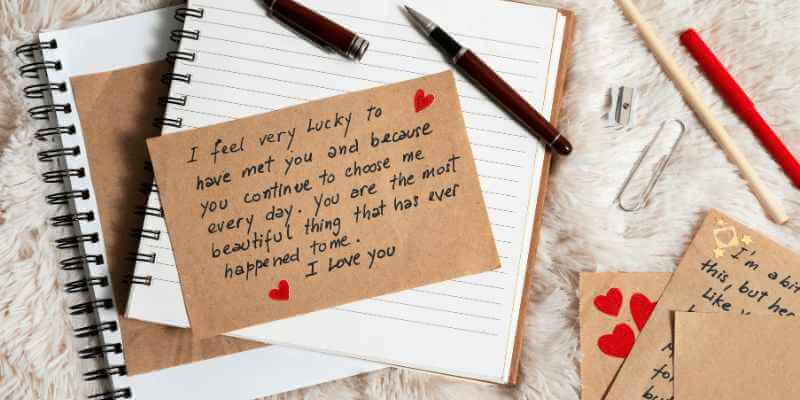 I feel very Lucky to
have met you and because
you continue to choose me
every day. You are the most
beautiful thing that has ever
happened to me.
I Love you
I'm a
this, but
Like